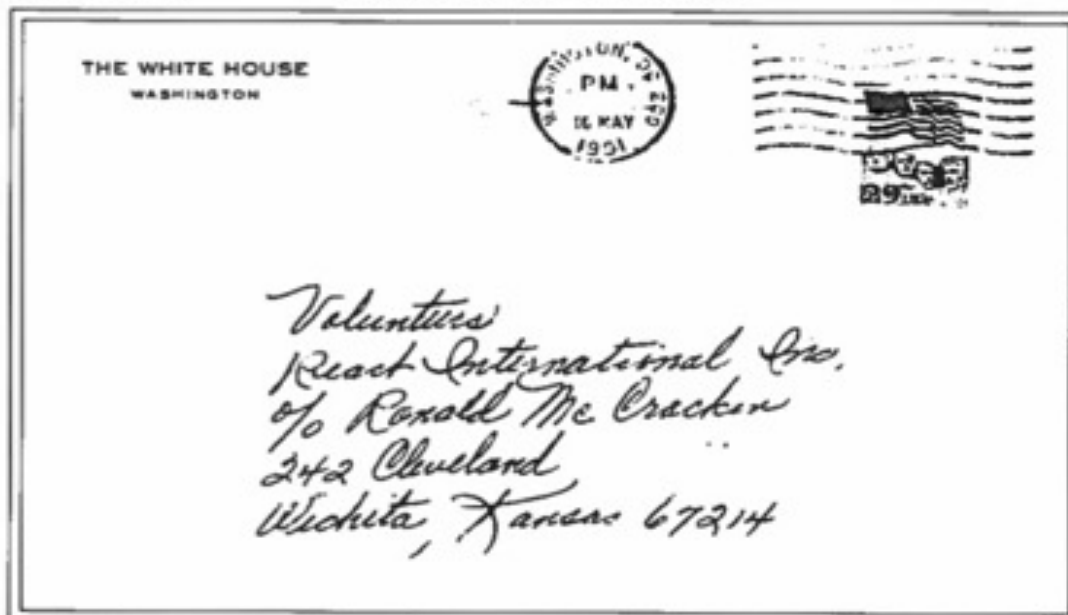 THE WHITE HOUSE
WASHINGTON
WASHINGTON, DC
PM
16 MAY
1991
29
Volunteers
React International Inc.
c/o Ronald McCracken
242 Cleveland
Wichita, Kansas 67214